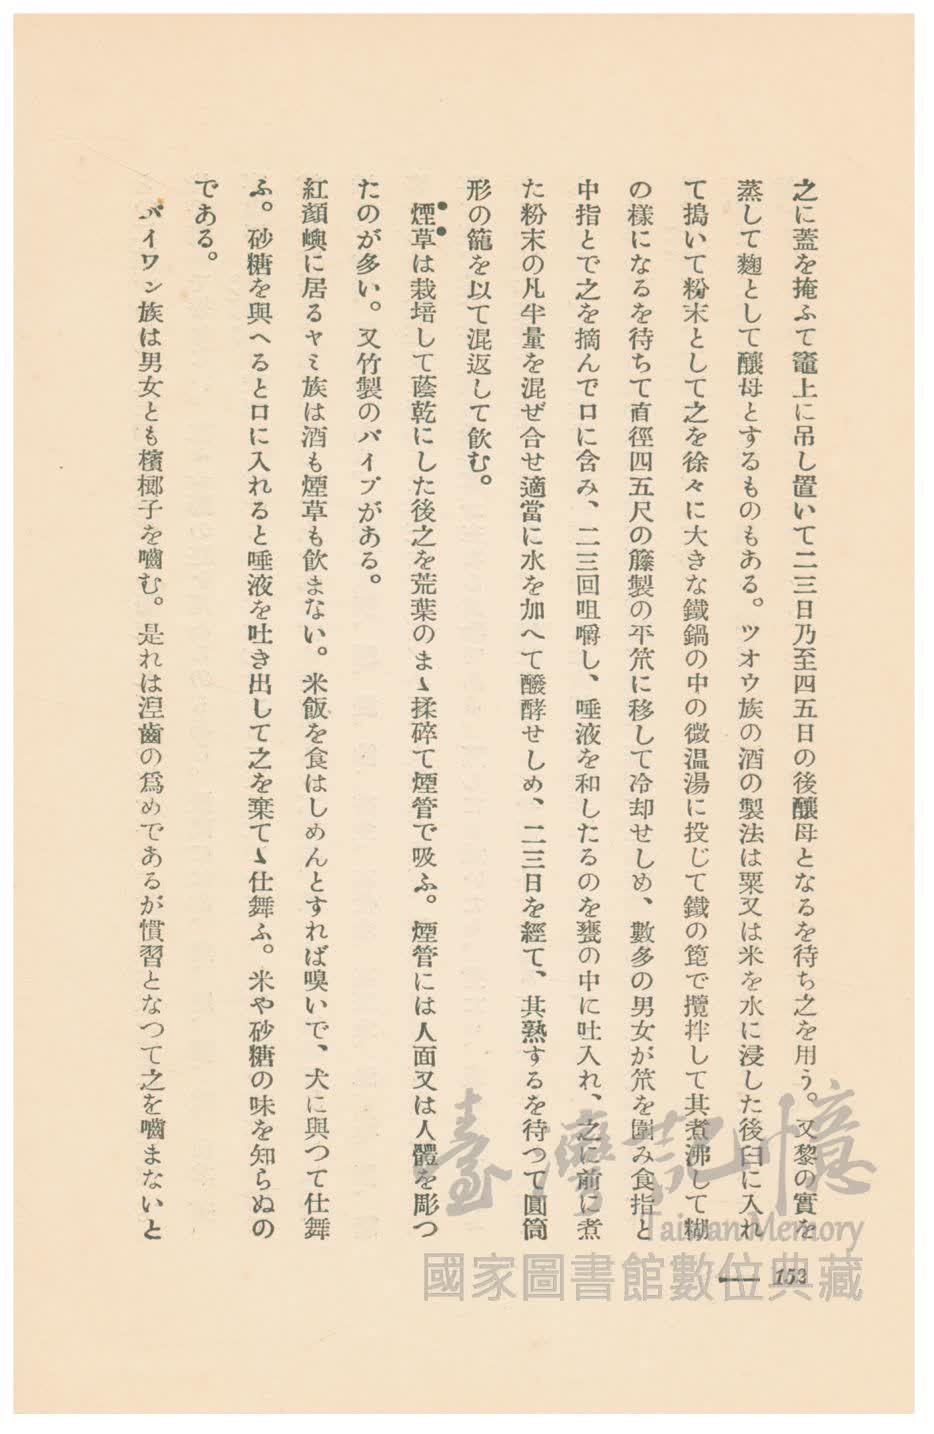 之に蓋を掩ふて竈上に吊し置いて二三日乃至四五日の後釀母となるを待ち之を用う。又黎の實を
蒸して麹として釀母とするものもある。ツオウ族の酒の製法は粟又は米を水に浸した後臼に入れ
て搗いて粉末として之を徐々に大きな鐵鍋の中の微温湯に投じて鐵の箆で攪拌して其煮沸して糊
の樣になるを待ちて直徑四五尺の籐製の平笊に移して冷却せしめ、數多の男女が笊を圍み食指と
中指とで之を摘んで口に含み、二三回咀嚼し、唾液を和したるのを甕の中に吐入れ、之に前に煮
た粉末の凡半量を混ぜ合せ適當に水を加へて醱酵せしめ、二三日を經て、其熟するを待つて圓筒
形の籠を以て混返して飮む。
煙草は栽培して蔭乾にした後之を荒葉のまゝ揉碎て煙管で吸ふ。煙管には人面又は人體を彫つ
たのが多い。又竹製のパイプがある。
紅頭嶼に居るヤミ族は酒も煙草も飮まない。米飯を食はしめんとすれば嗅いで、犬に與つて仕舞
ふ。砂糖を與へると口に入れると唾液を吐き出して之を棄てゝ仕舞ふ。米や砂糖の味を知らぬの
である。
パイワン族は男女とも檳榔子を嚙む。是れは涅齒の爲めであるが慣習となつて之を嚙まないと
153
臺灣記憶
Taiwan Memory
國家圖書館數位典藏